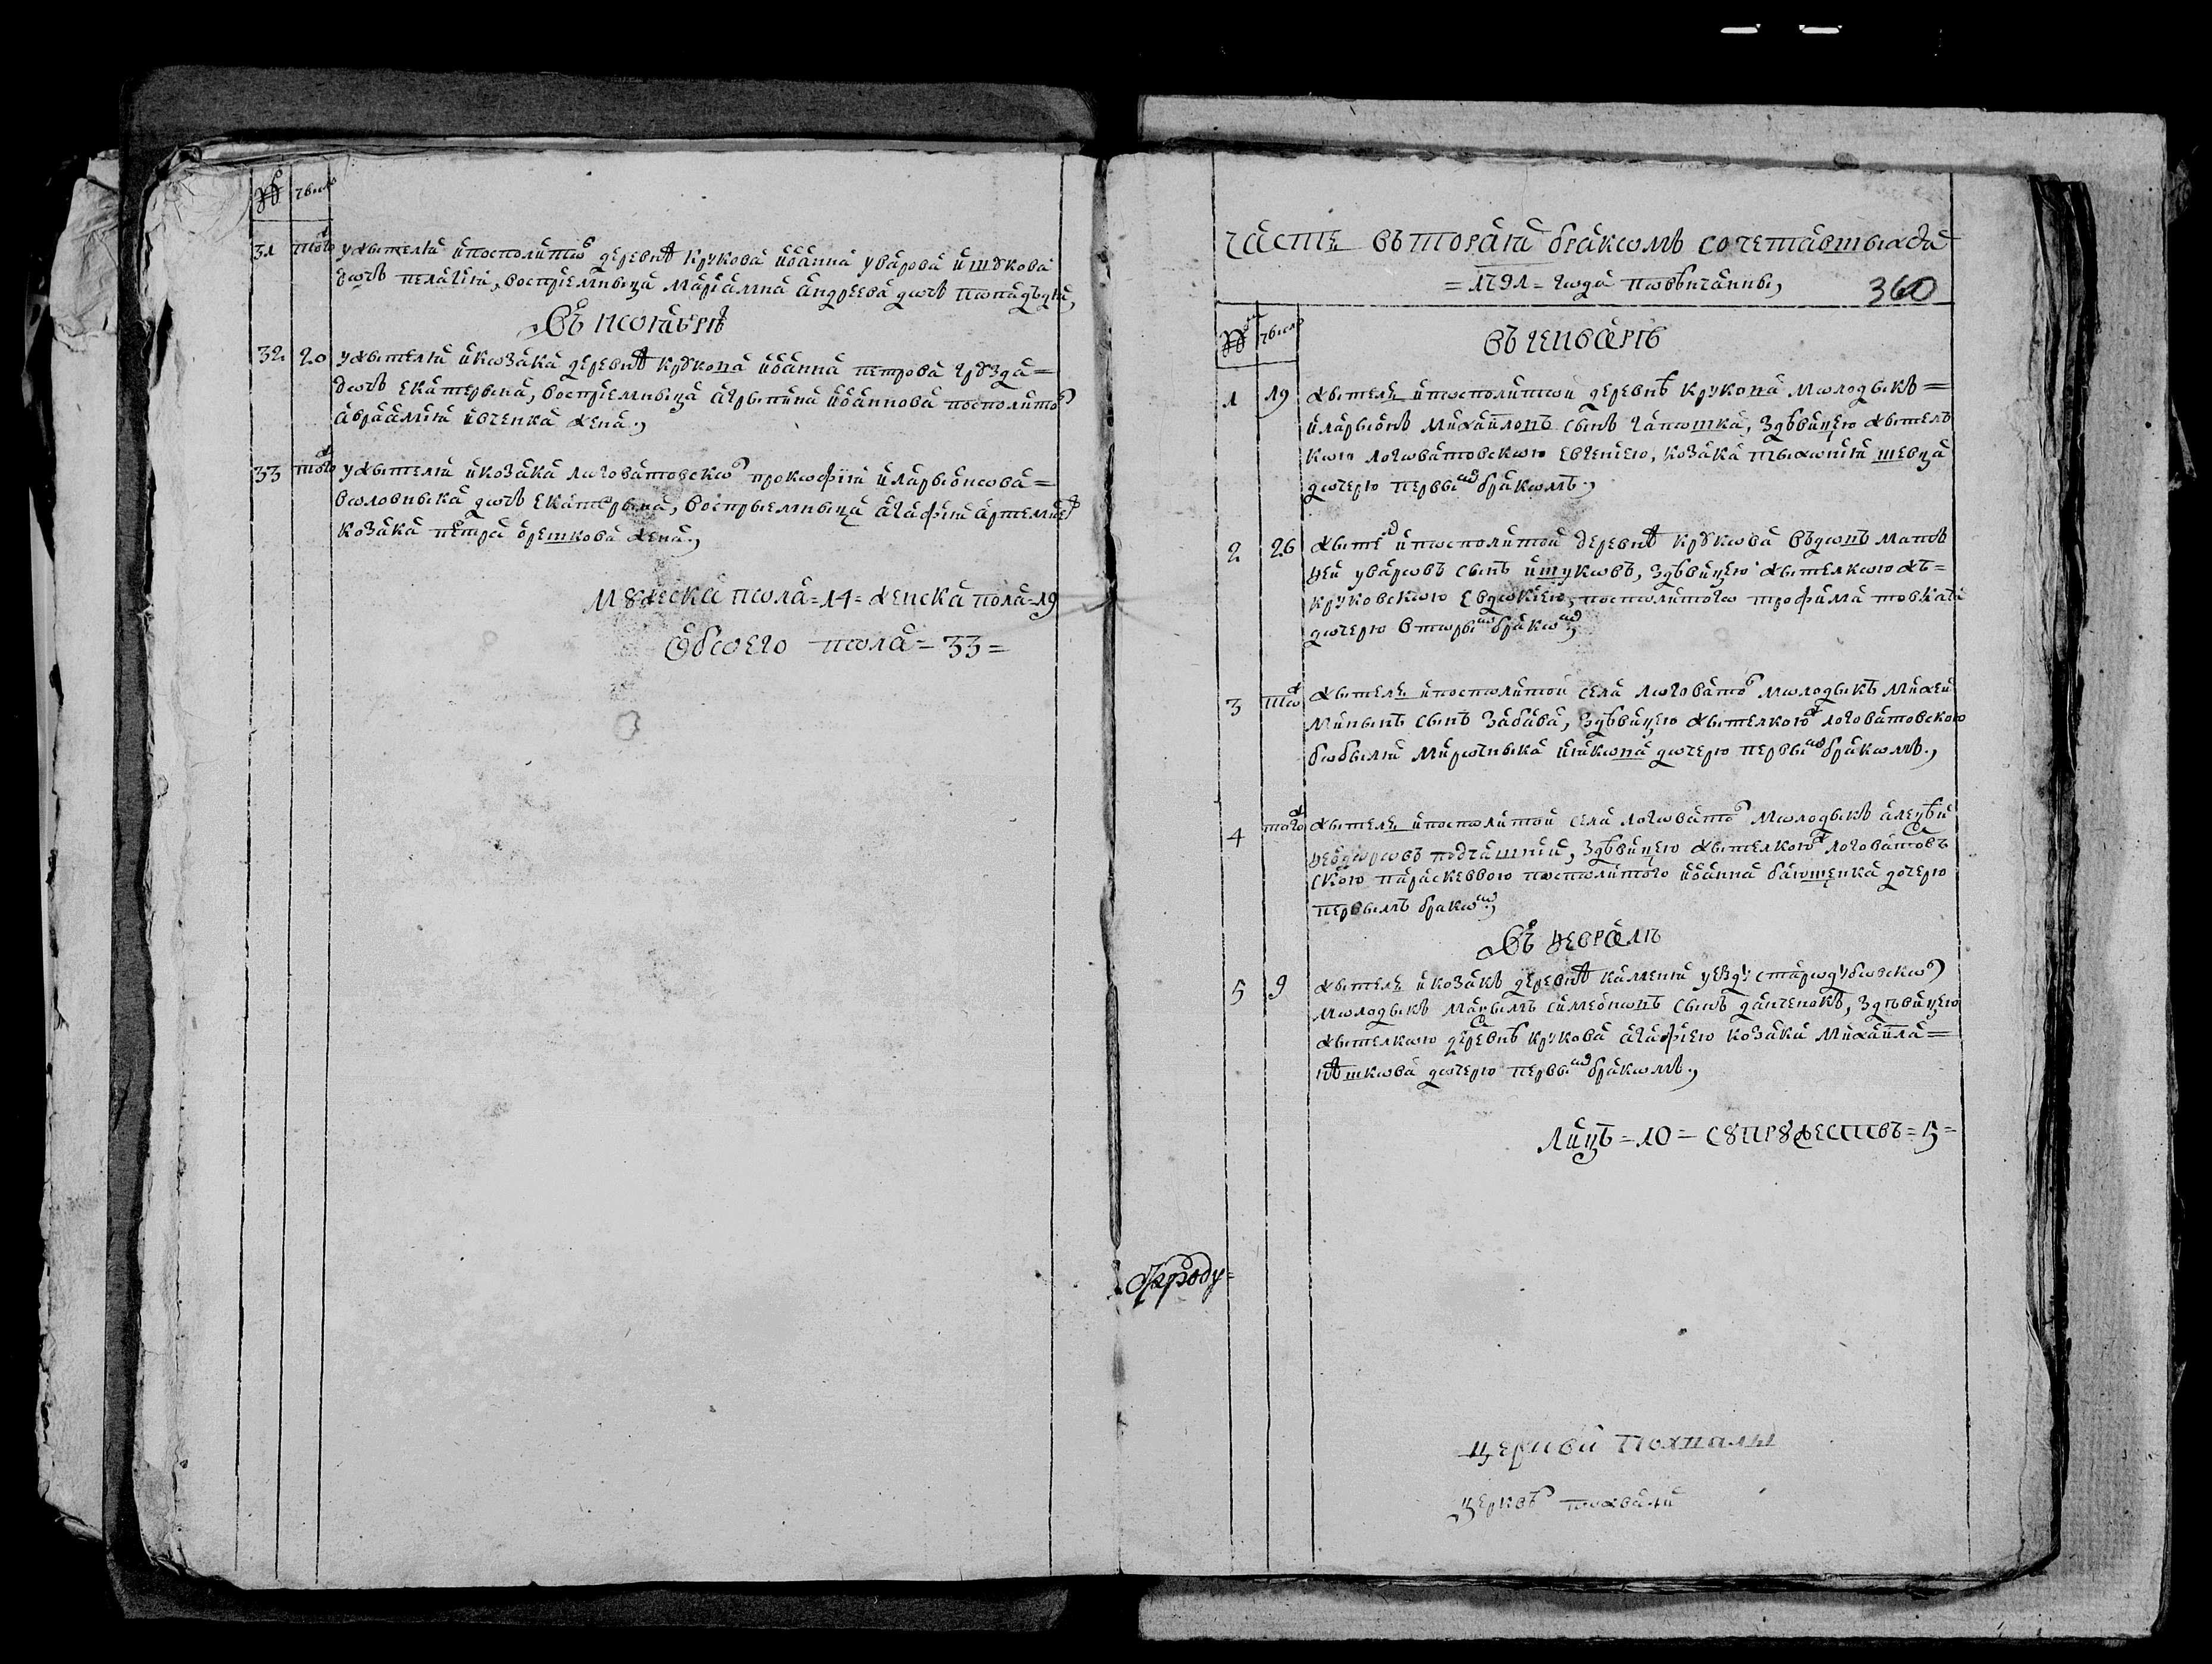 № число
31 того ж у жителя и посполито деревнѣ Крукова Иоанна Уварова Ишукова
дочь Пелагия, восприемница Мариамна Андреева дочь попадья,
Въ ноябрѣ
32 20 у жителя и козака деревнѣ Крукова Иоанна Петрова Грузда=
дочь Екатерына, восприемница Агрыпина Иоаннова посполитог
Авраамия Ивченка жена.,
33 того ж у жителя и козака логоватовского Прокофия Иларыонова=
дочь Екатерына, восприемница Агафия Артемие
козака Петра Орешкова жена.,
Мужеска пола=14= женска пола=19
Обоего пола=33=
Часть вьторая браком сочетавшыхся
=1791= года повѣнчанны,
360
№ число
въ генварѣ
1 19 жытель и посполитой деревнѣ Крукова молодыкъ=
Иларыонъ Михайловъ сынъ Гапошка, з дѣвицею жытель
кою логоватовскою Евгениею, козака Тыхония Шевца
дочерю первым браком.,
2 26 житель и посполитой деревнѣ Крукова въдовъ Матѳ
ѳей Уваровъ сынъ Ишуковъ, з дѣвицею жителкою ж=
круковскою Евдокиею, посполитого Трофима Товкача
дочерю вторым браком,
3 то ж житель и посполитой села Логовато молодыкъ Михей
Мининъ сынъ Забава, з дѣвицею жителкою ж логоватовскою
бобыля Мирочныка Иякова дочерю первым браком.,
4 того ж житель и посполитой села Логовато молодыкъ Алеѯѣй
Ѳеодоровъ з дѣвицею жителкою ж логоватовъ
скою Параскеввою посполитого Иоанна дочерю
первымъ браком.,
Въ ѳевралѣ
5 9 житель и козакъ деревнѣ Каменя уезду стародубовского
молодыкъ Симеоновъ сынъ Данченокъ, з дѣвицею
жителкою деревнѣ Крукова Агафиею козака Михайла=
дочерю первым браком.,
Лицъ=10= супружествъ=5=
Городу=
церкви Похвалы
Церквѣ похвали